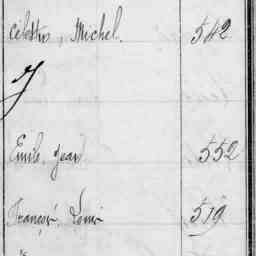 Célestin, Michel. 542
J
Emile, Jean 552
François, Louis 519